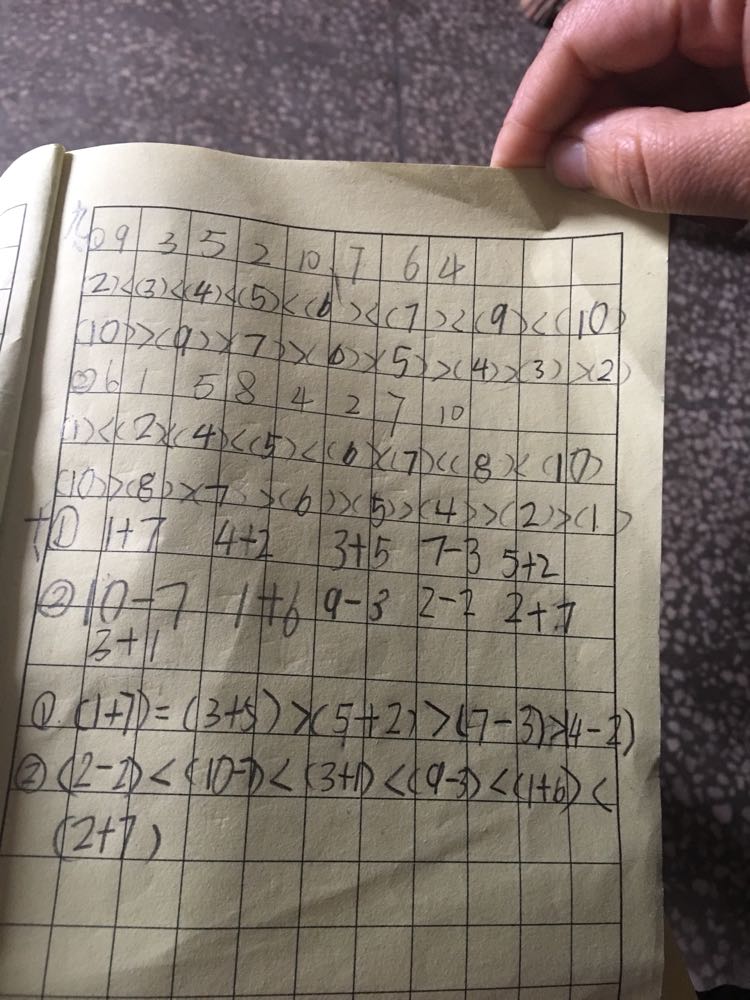 九① 9 3 5 2 10 7 6 4
(2)<(3)<(4)<(5)<(6)<(7)<(9)<(10)
(10)>(9)>(7)>(6)>(5)>(4)>(3)>(2)
② 6 1 5 8 4 2 7 10
(1)<(2)<(4)<(5)<(6)<(7)<(8)<(10)
(10)>(8)>(7)>(6)>(5)>(4)>(2)>(1)
十① 1+7 4+2 3+5 7-3 5+2
② 10-7 1+6 9-3 2-2 2+7
3+1
① (1+7)=(3+5)>(5+2)>(7-3)>4-2)
② (2-2)<(10-7)<(3+1)<(9-3)<(1+6)<
(2+7)